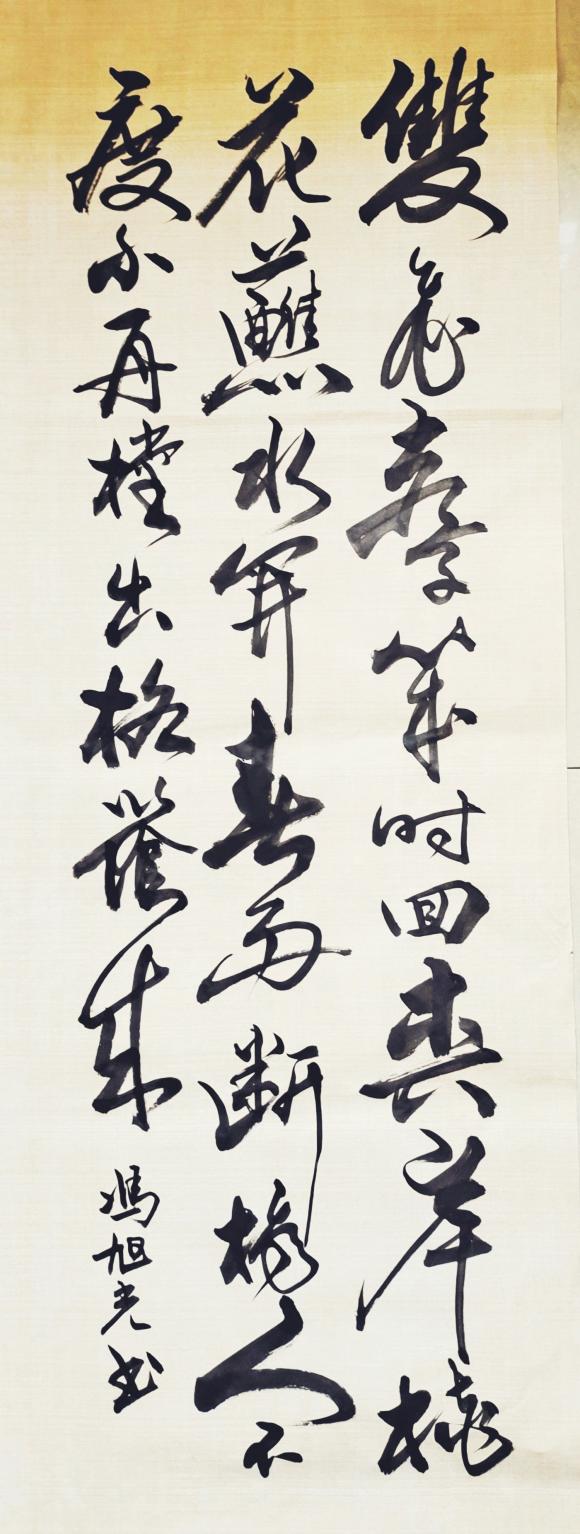 雙飛燕子幾时回夾岸桃
花蘸水開春雨断橋人不
度小舟撑出柳蔭来
馮旭光书